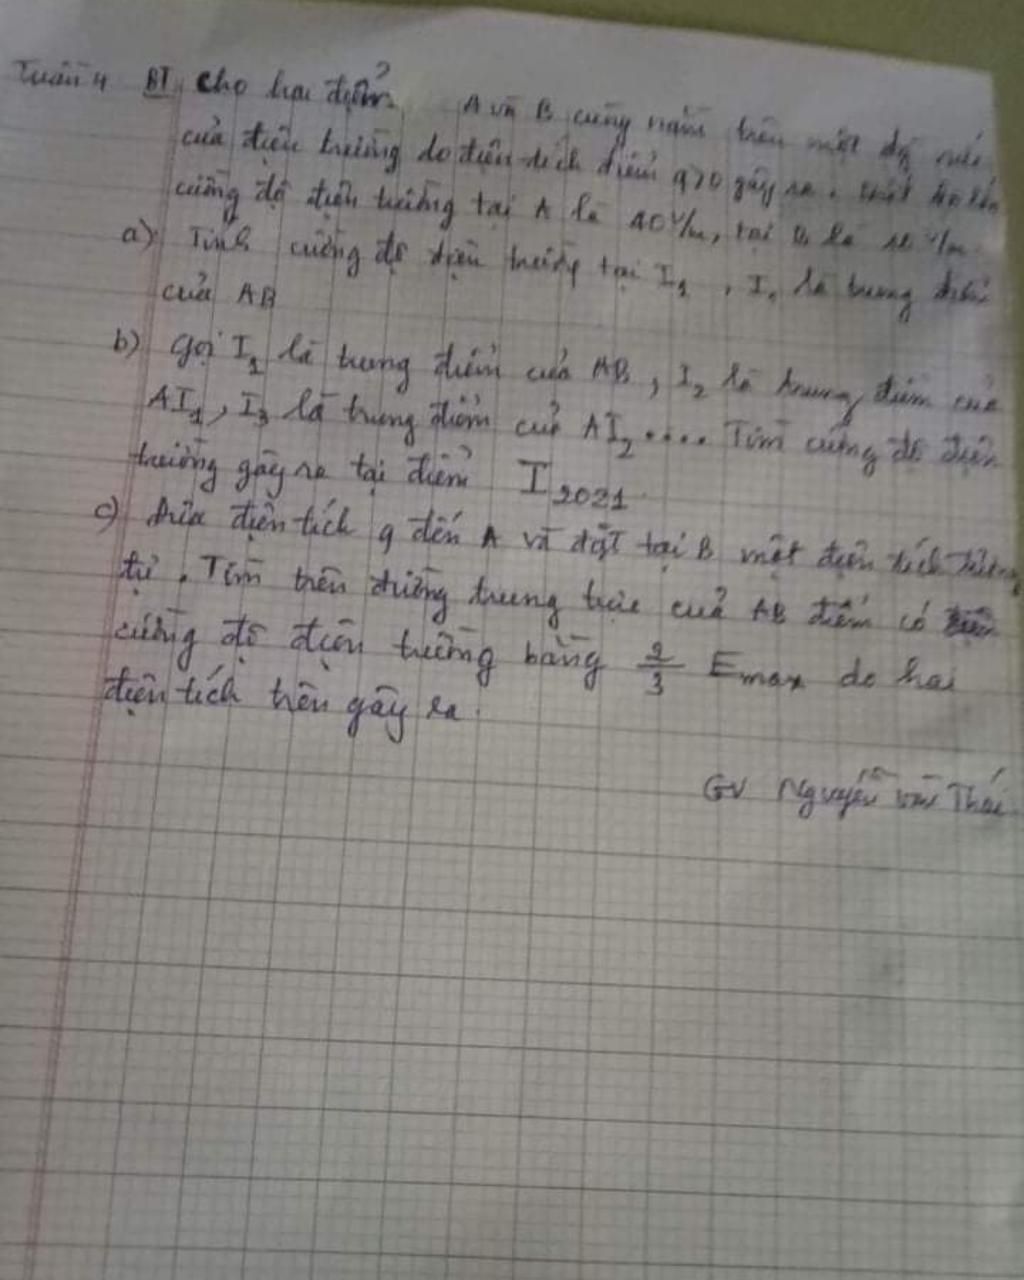 Tuần 4 BT Cho hai điểm A và B cùng nằm trên một đg
của điện trường do điện tích điểm q>0 gây ra.
cường độ điện trường tại A là 40 V/m, tại B là
a) Tính cường độ điện trường tại I1, I1 là trung điểm
của AB
b) gọi I1 là trung điểm của AB, I2 là trung điểm của
AI1, I3 là trung điểm của AI2.... Tìm cường độ điện
trường gây ra tại điểm I2021
c) Đưa điện tích q đến A và đặt tại B một điện tích tương
tự. Tìm trên đường trung trực của AB điểm có
cường độ điện trường bằng 2/3 Emax do hai
điện tích trên gây ra.
GV Nguyễn Văn Thái